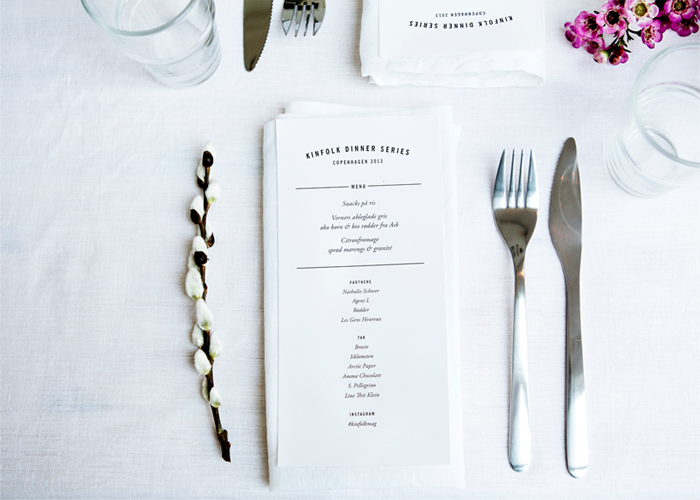 KINFOLK DINNER SERIES
COPENHAGEN 2013
KINFOLK DINNER SERIES
COPENHAGEN 2013
MENU
Snacks på ris
Verners æbleglade gris
ako korn & bio rødder fra Ask
Citronfromage
sprød marengs & granité
PARTNERS
Nathalie Schwer
Agent L
Rødder
Les Gens Heureux
TAK
Broste
Siklamsten
Arctic Paper
Amma Chocolate
S. Pellegrino
Line Thit Klein
INSTAGRAM
#kinfolkmag